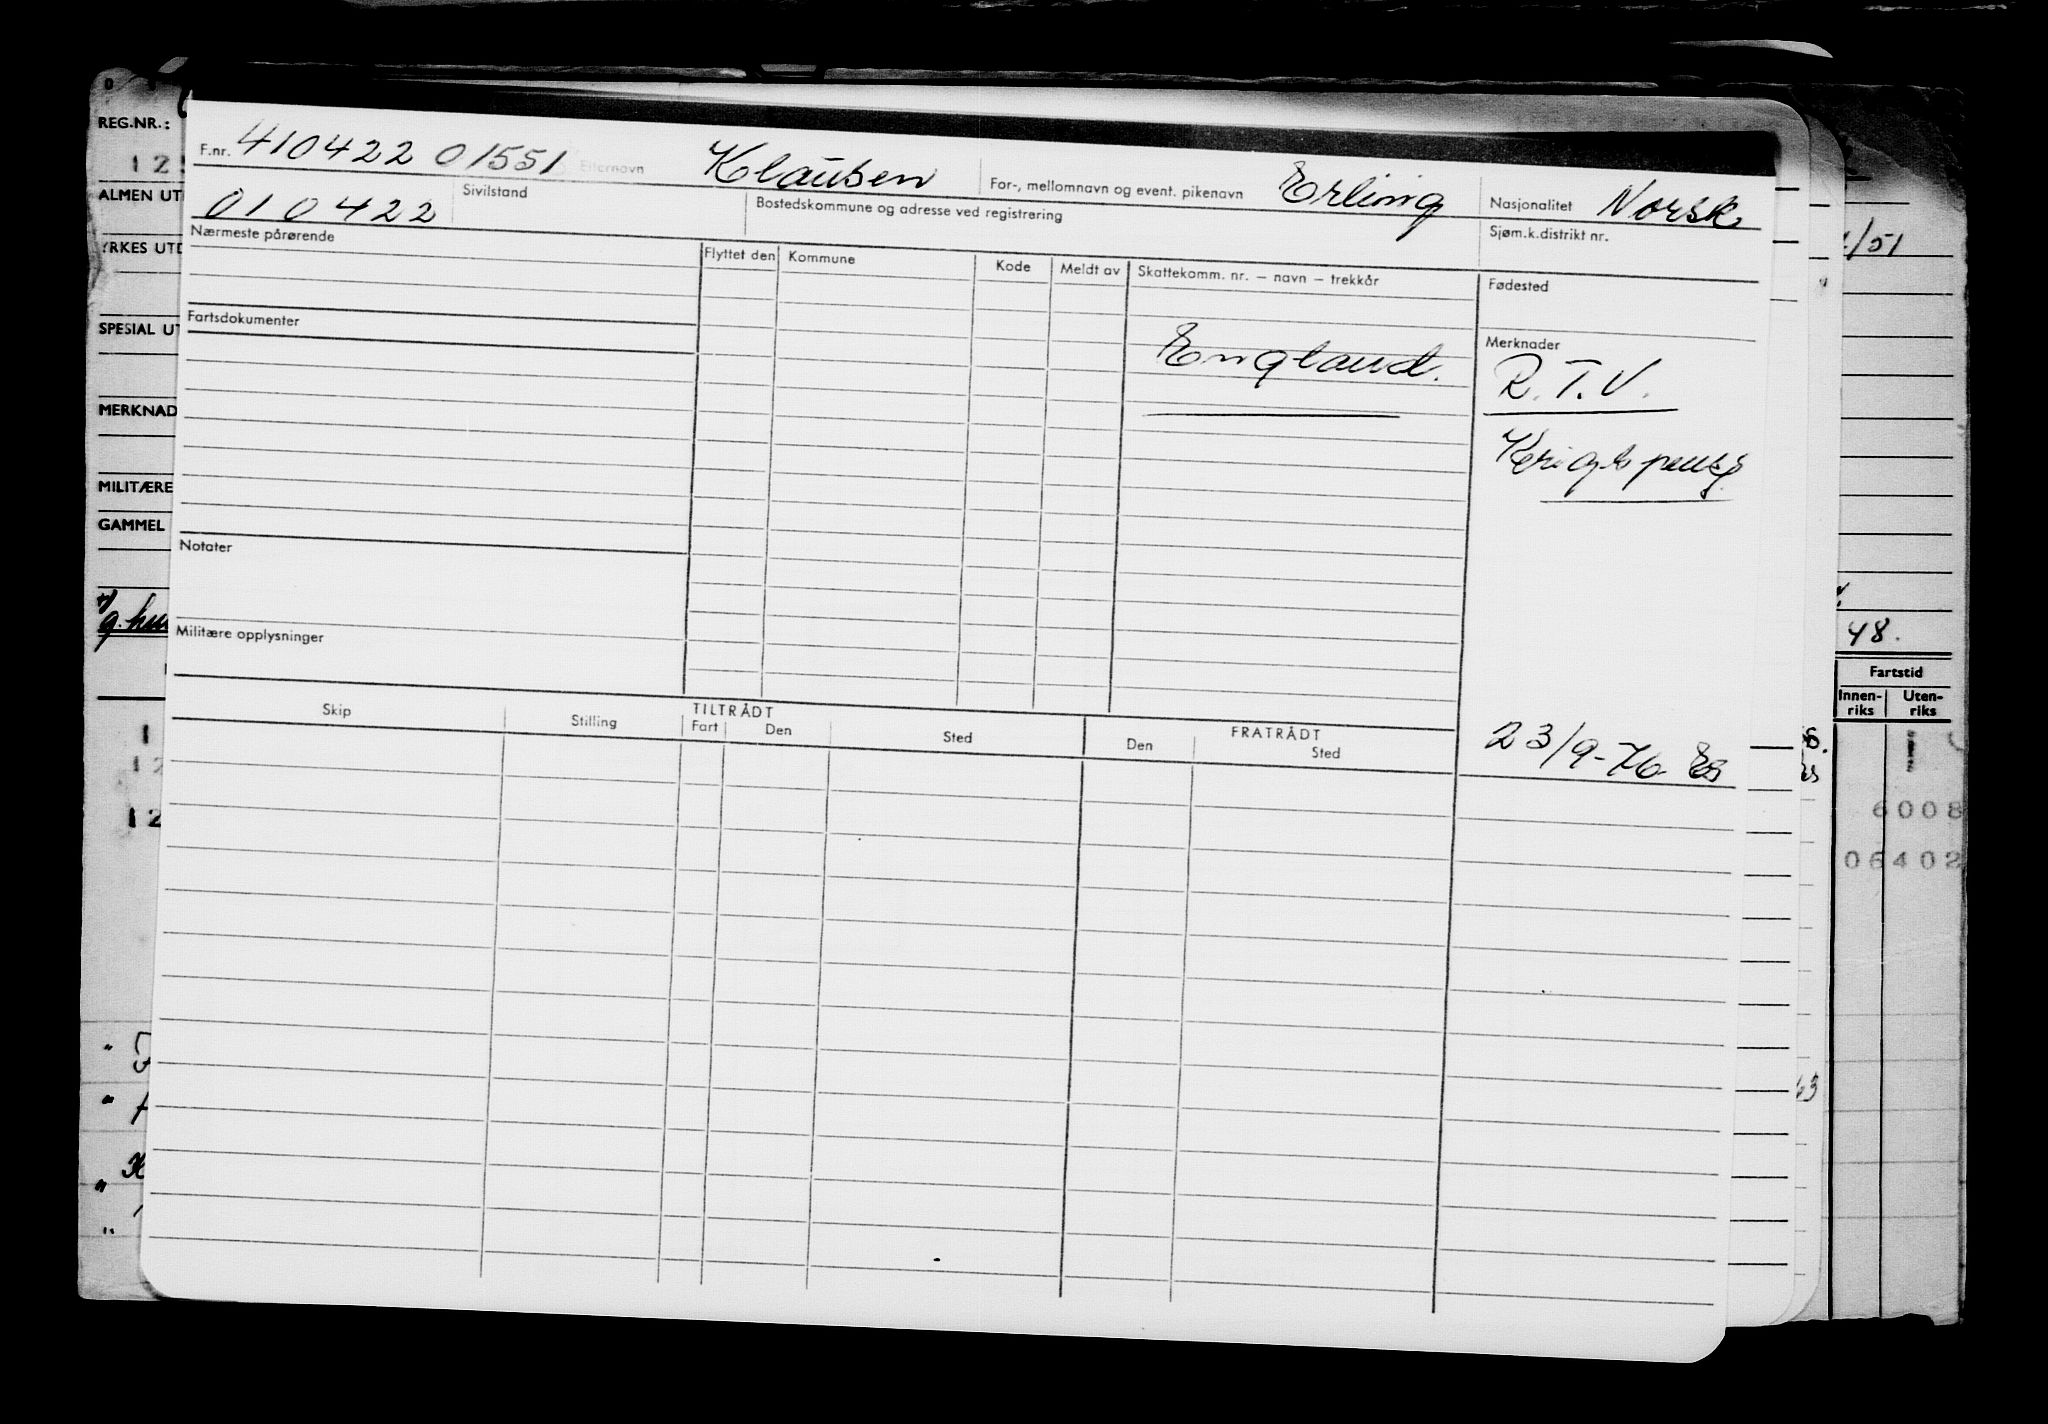 F.nr. 410422 01551 Etternavn Klausen For-, mellomnavn og event. pikenavn Erling Nasjonalitet Norsk
010422 Sivilstand Bostedskommune og adresse ved registrering Sjøm.k.distrikt nr.
Nærmeste pårørende Flyttet den Kommune Kode Meldt av Skattekomm. nr. – navn – trekkår Fødested
Fartsdokumenter England. Merknader
R.T.V.
Krigspensj.
Notater
Militære opplysninger
TILTRÅDT FRATRÅDT
Skip Stilling Fart Den Sted Den Sted
23/9-76
REG.NR.:
ALMEN UT
YRKES UTD
SPESIAL UT
MERKNAD
MILITÆRE
GAMMEL
/51
48.
Fartstid
Innen-riks Uten-riks
6008
06402